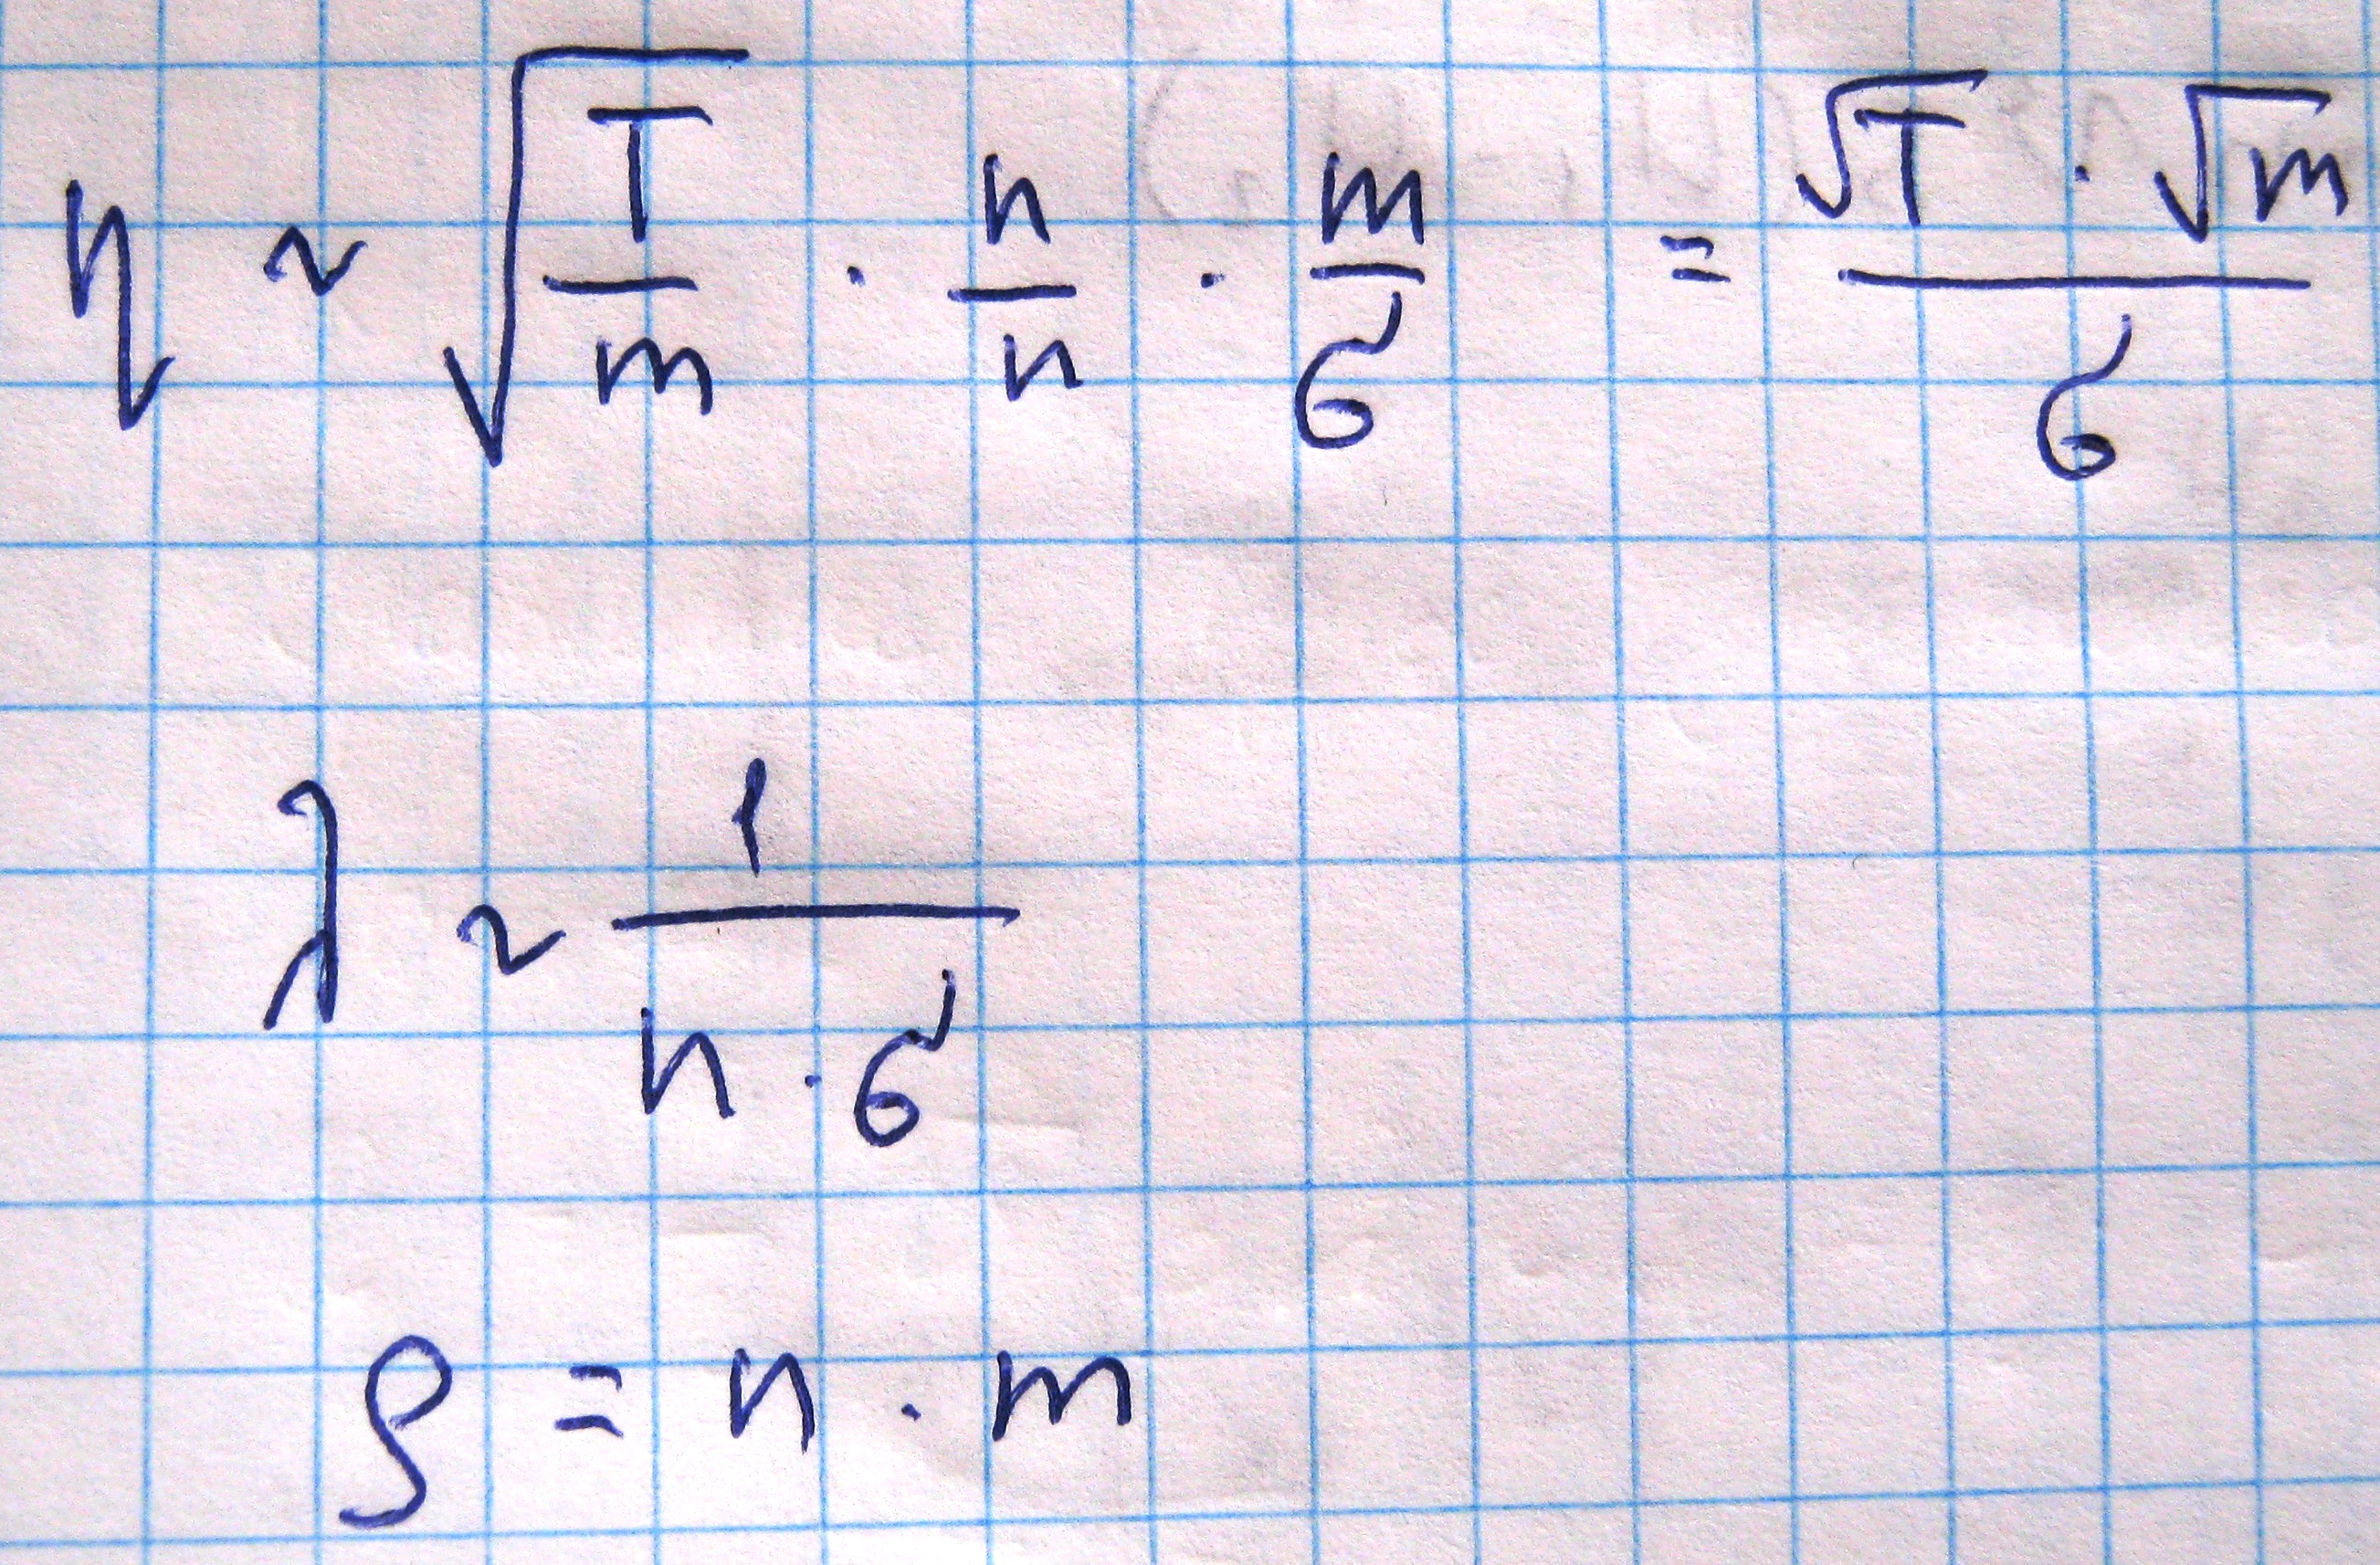 η ~ √(T/m) · n/n · m/σ = (√T · √m)/σ
λ ~ 1/(n · σ)
ρ = n · m